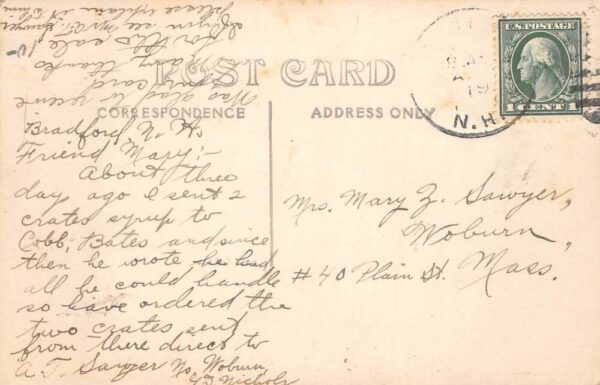 POST CARD
CORRESPONDENCE
ADDRESS ONLY
U.S. POSTAGE
1 CENT 1
N.H.
Bradford, N. H.
Friend Mary:-
About three
day ago I sent 2
crates syrup to
Cobb, Bates and since
then he wrote he had
all he could handle
so have ordered the
two crates sent
from there direct to
A. T. Sawyer No. Woburn,
45 Nichols
Was glad to receive
card
Many thanks
for the sale
When see Mr. A. T. Sawyer
please explain it to him
Mrs. Mary Z. Sawyer,
Woburn,
#40 Plain St. Mass.